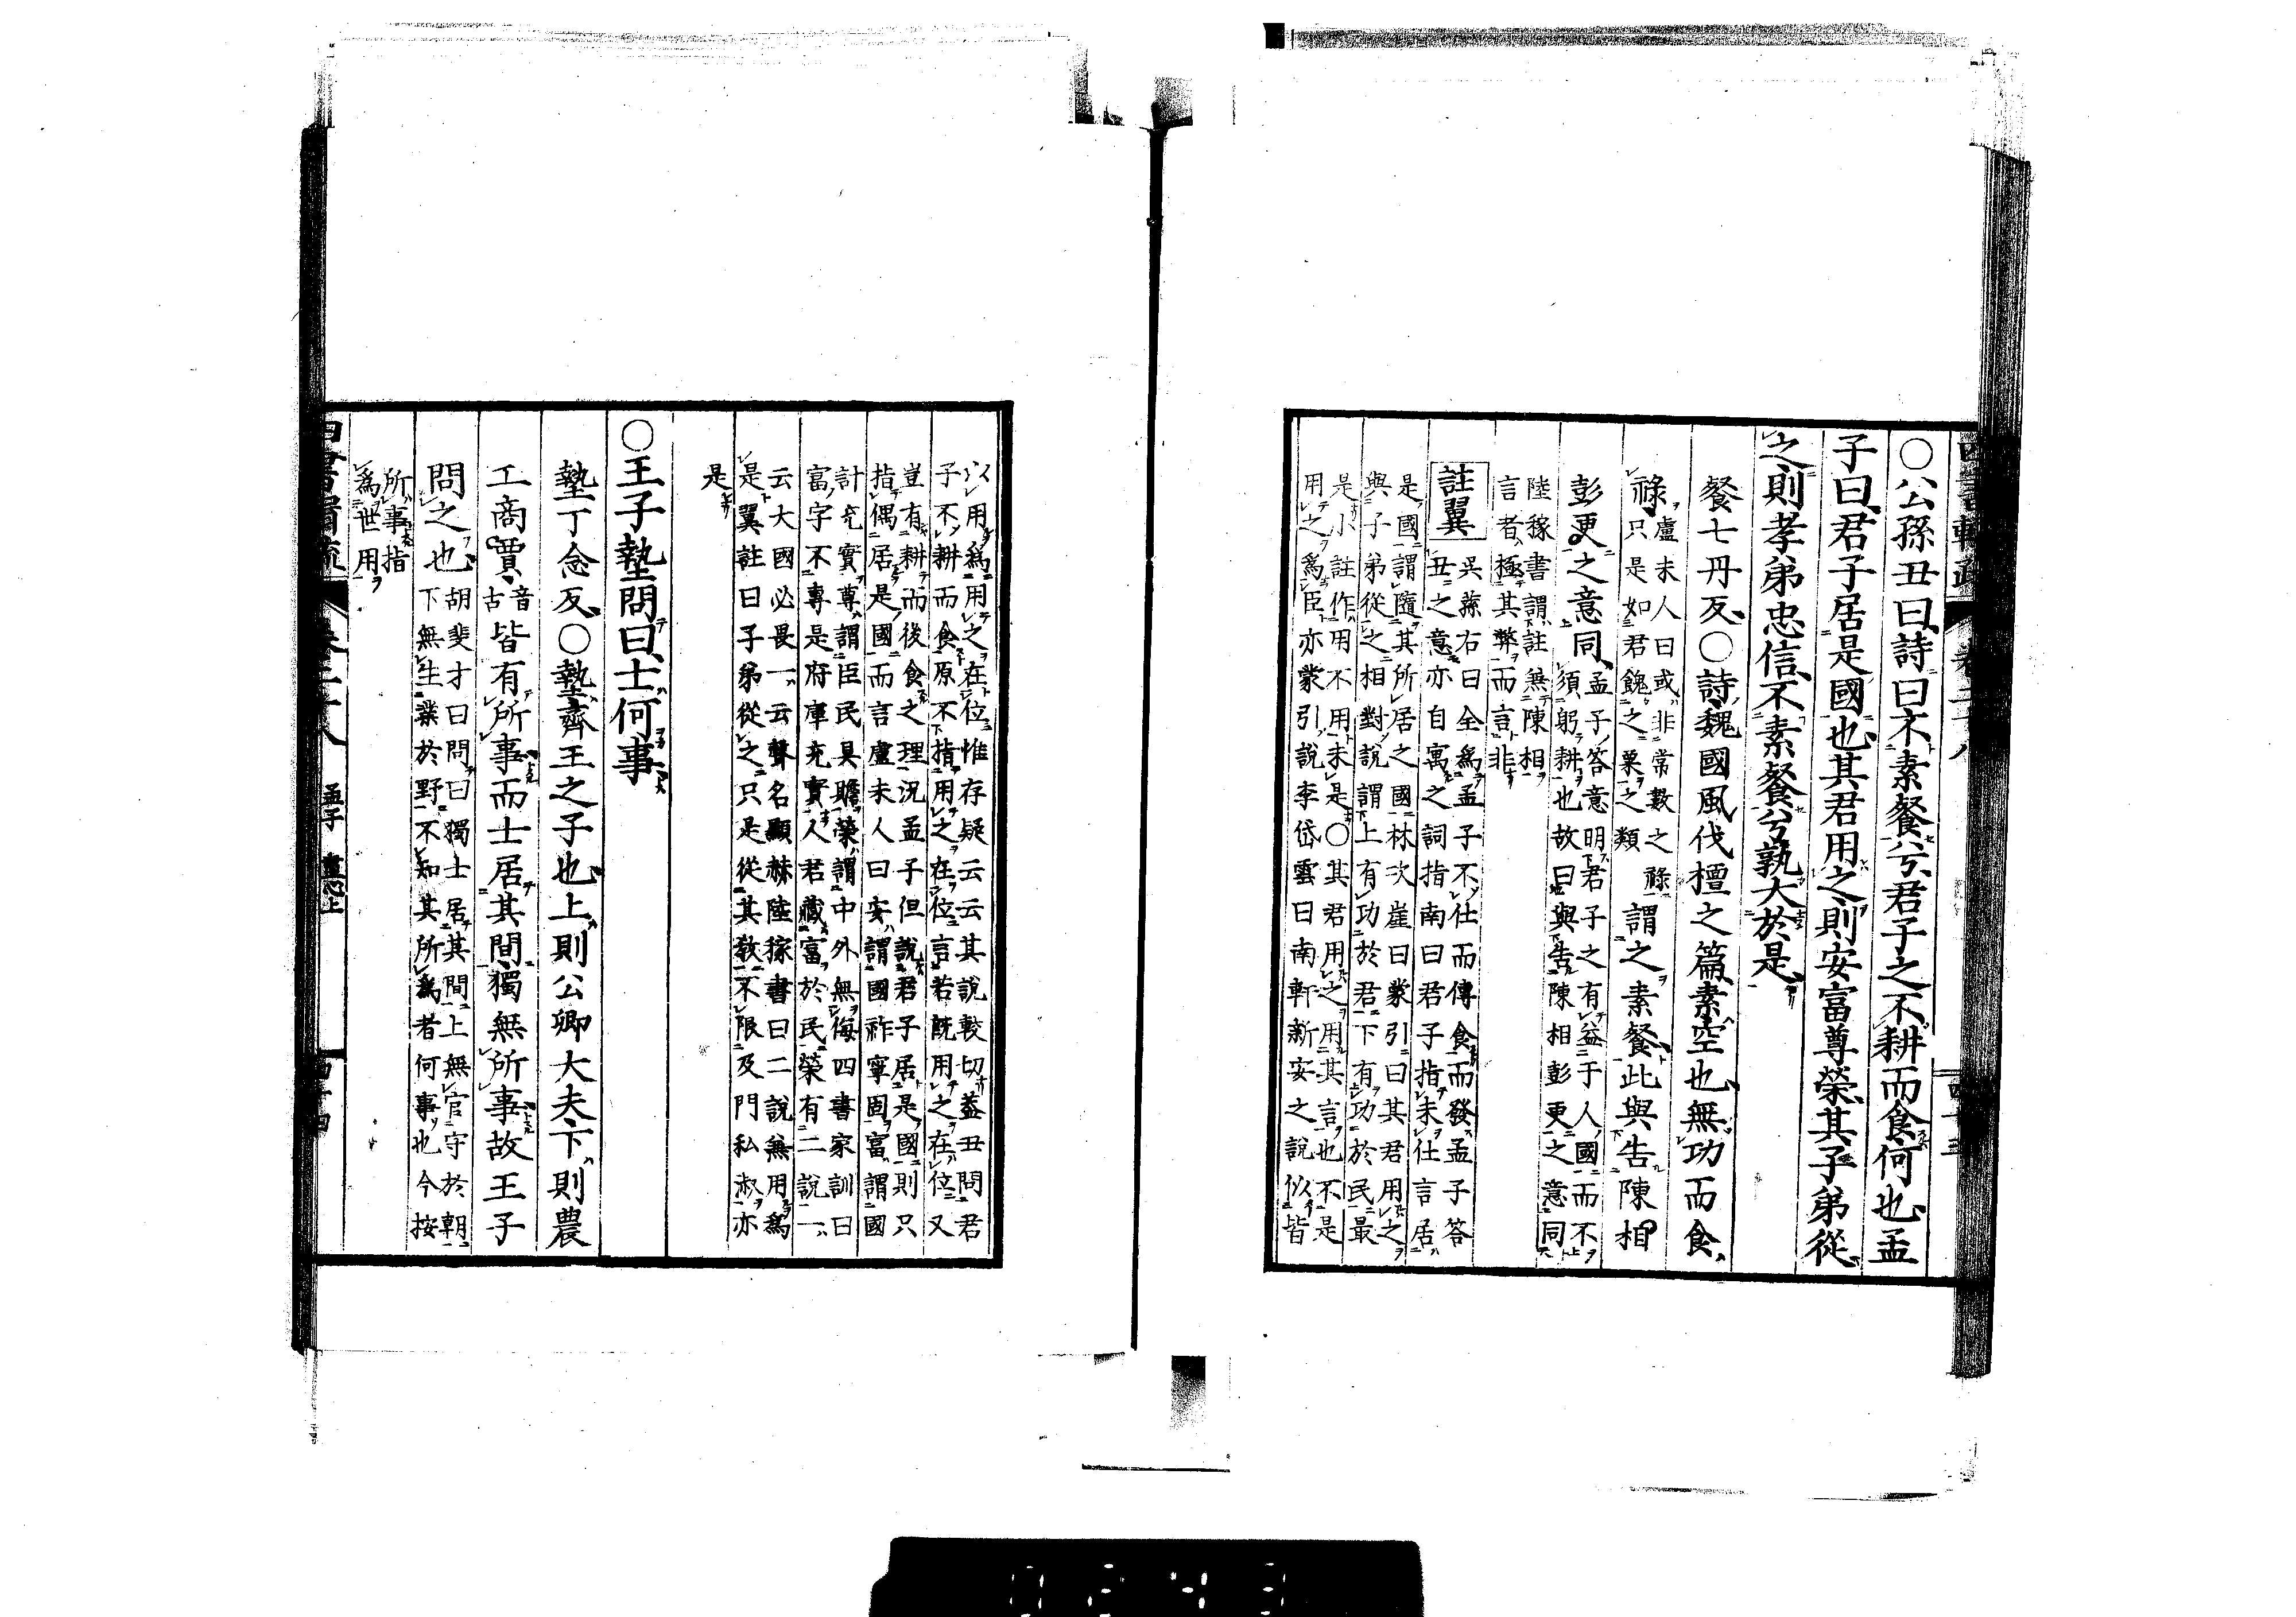 〇公孫丑曰詩曰不素餐兮君子之不耕而食何也孟
子曰君子居是國也其君用之則安富尊榮其子弟從
之則孝弟忠信不素餐兮孰大於是
餐七丹反〇詩魏國風伐檀之篇素空也無功而食
祿盧未人曰或非常數之祿
只是如君餽之粟之類謂之素餐此與告陳相
彭更之意同孟子答意明君子之有益于人國而不
須躬耕也故曰與告陳相彭更之意同
陸稼書謂註無陳相
言者極其弊而言非
註翼
吳蓀右曰全為孟子不仕而傳食而發孟子答
丑之意亦自寓之詞指南曰君子指未仕言居
是國謂隨其所居之國林次崖曰蒙引曰其君用之
與子弟從之相對說謂上有功於君下有功於民最
是小註作用不用未是〇其君用之用其言也不是
用之為臣亦蒙引說李岱雲曰南軒新安之說似皆
以用為用之在位惟存疑云云其說較切蓋丑問君
子不耕而食原不指用之在位言若既用之在位又
豈有耕而後食之理況孟子但說君子居是國則只
指偶居是國而言盧未人曰安謂國祚寧固富謂國
計充實尊謂臣民具瞻榮謂中外無侮四書家訓曰
富字不專是府庫充實人君藏富於民榮有二說一
云大國必畏一云聲名顯赫陸稼書曰二說無用為
是翼註曰子弟從之只是從其教不限及門私淑亦
是
〇王子墊問曰士何事
墊丁念反〇墊齊王之子也上則公卿大夫下則農
工商賈音古皆有所事而士居其間獨無所事故王子
問之也胡斐才曰問曰獨士居其間上無官守於朝
下無生業於野不知其所為者何事也今按
所事指
為世用
孟子
盡心上